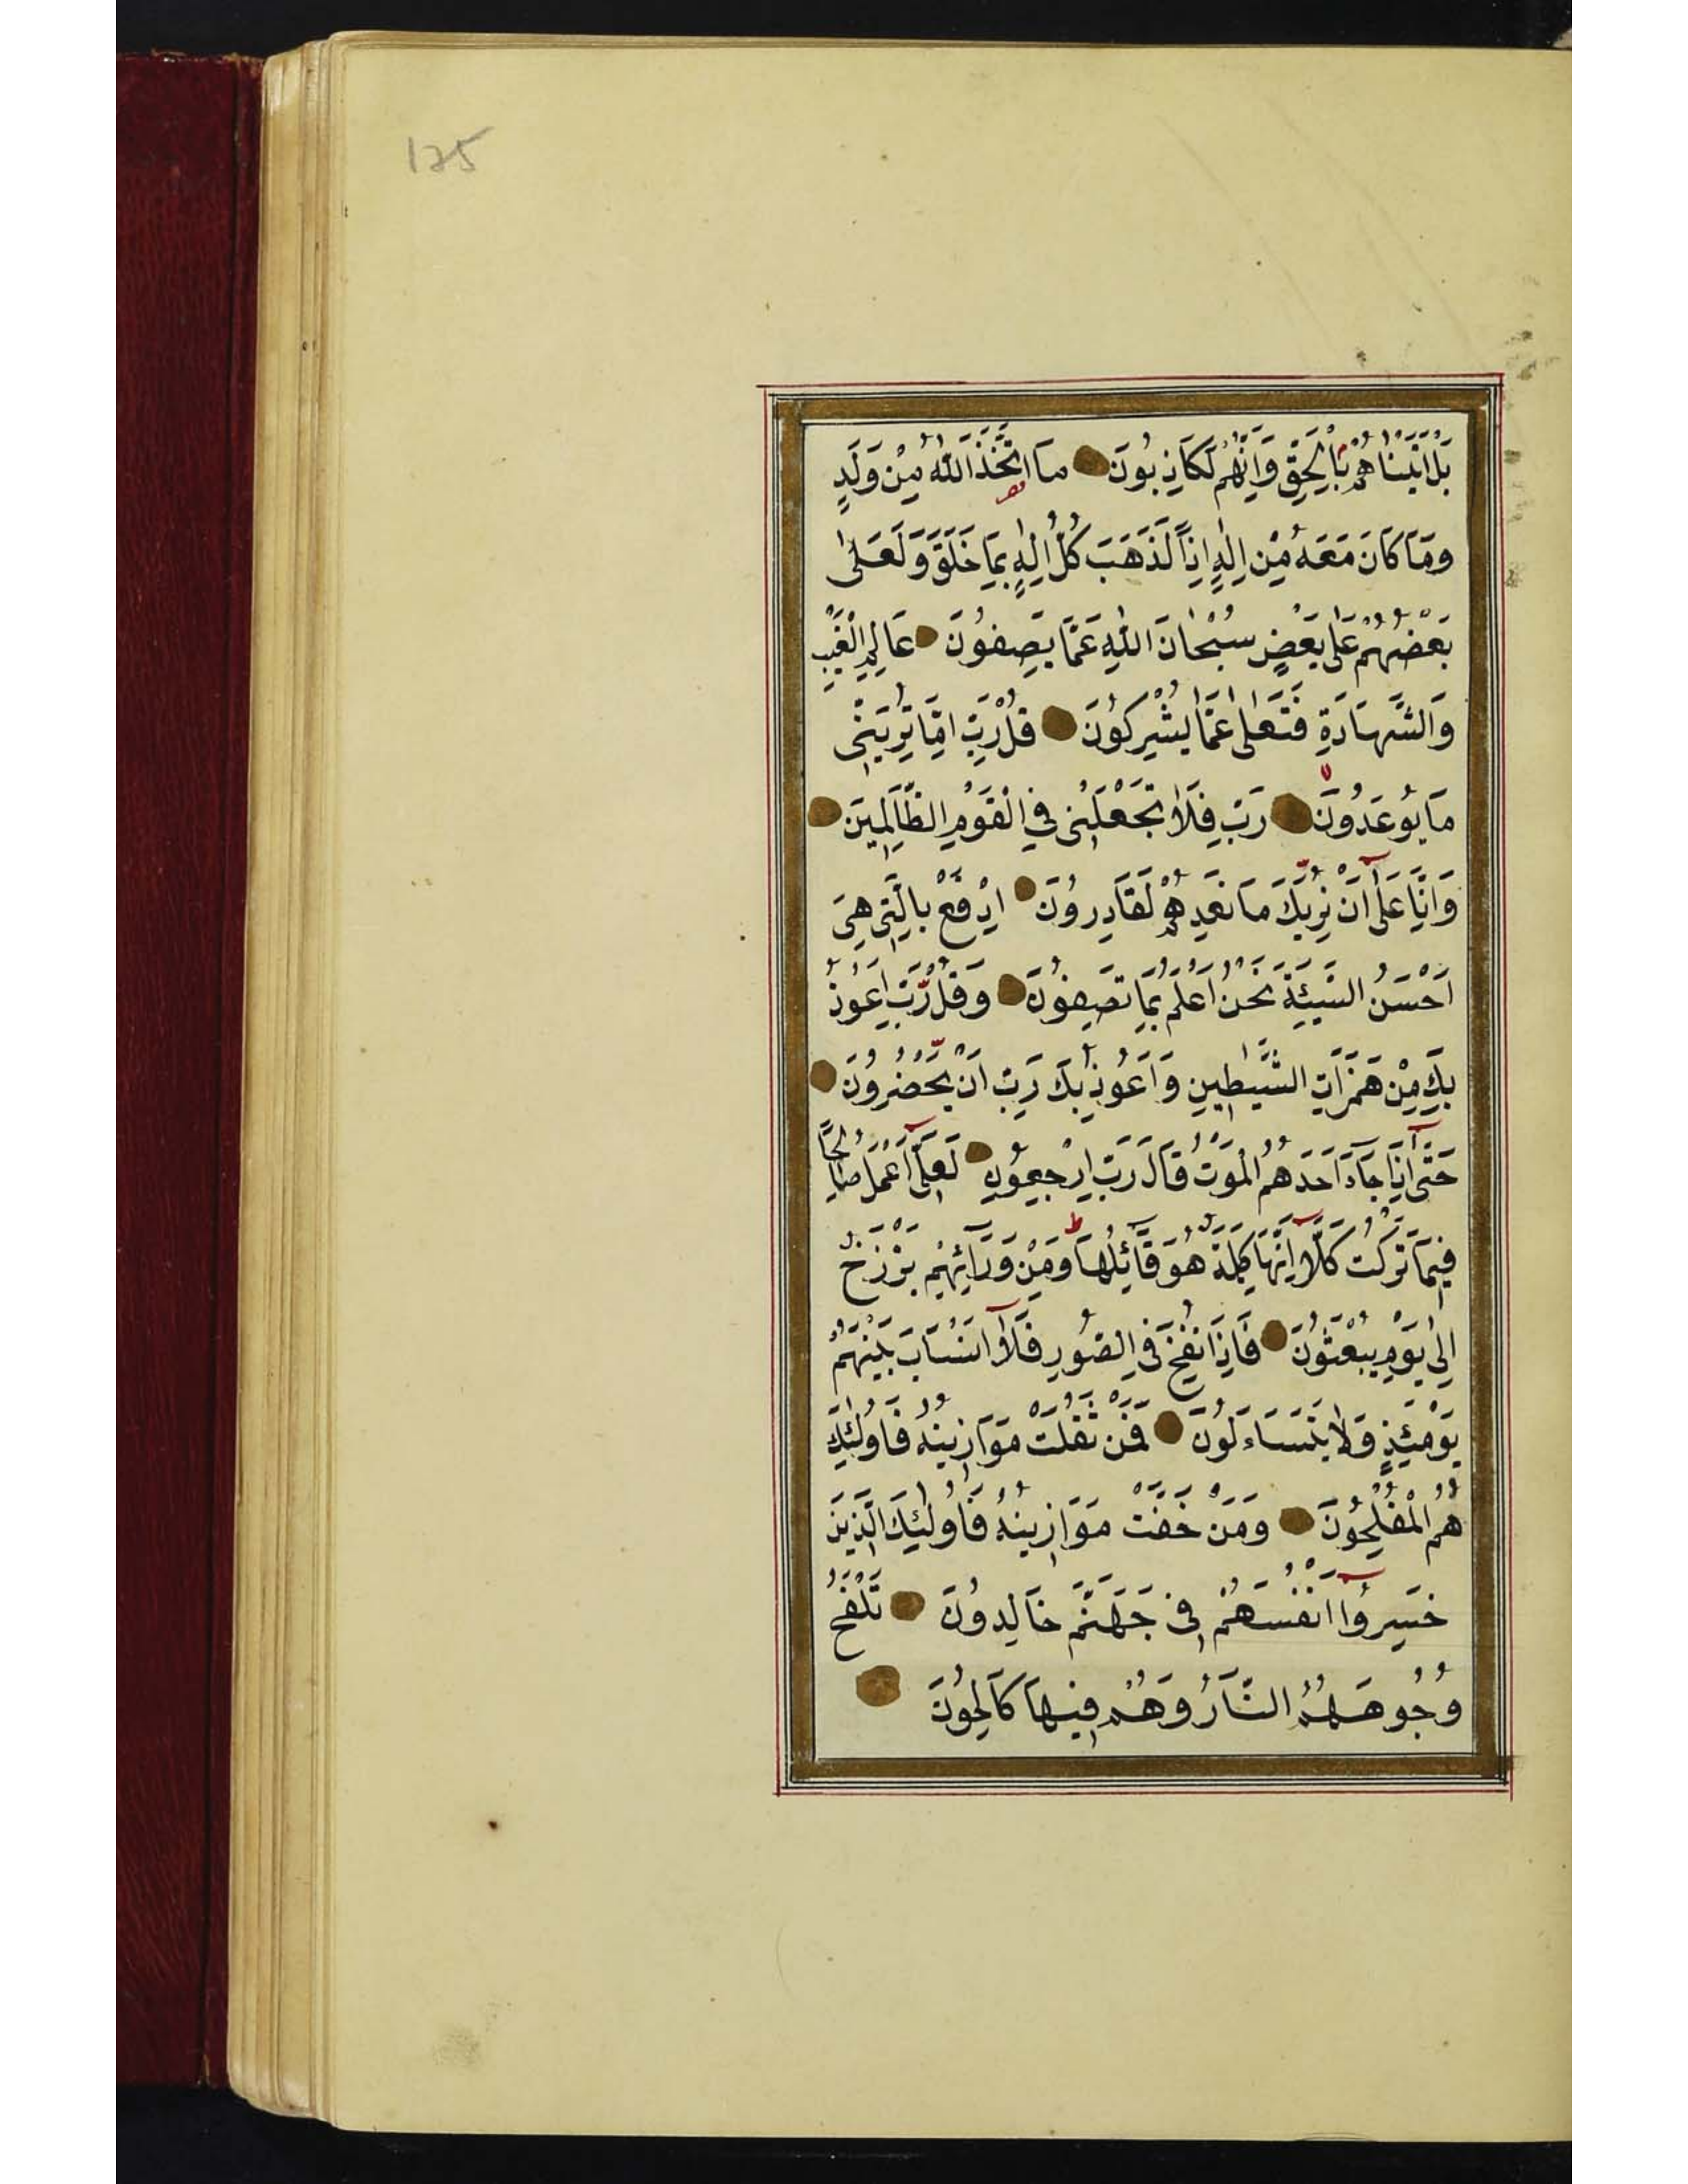 175
بَلْ اَتَيْنَاهُمْ بِالْحَقِّ وَاِنَّهُمْ لَكَاذِبُونَ مَا اتَّخَذَ اللّٰهُ مِنْ وَلَدٍ
وَمَا كَانَ مَعَهُ مِنْ اِلٰهٍ اِذًا لَذَهَبَ كُلُّ اِلٰهٍ بِمَا خَلَقَ وَلَعَلٰى
بَعْضُهُمْ عَلٰى بَعْضٍ سُبْحَانَ اللّٰهِ عَمَّا يَصِفُونَ عَالِمِ الْغَيْبِ
وَالشَّهَادَةِ فَتَعَالٰى عَمَّا يُشْرِكُونَ قُلْ رَبِّ اِمَّا تُرِيَنِّى
مَا يُوعَدُونَ رَبِّ فَلَا تَجْعَلْنِى فِى الْقَوْمِ الظَّالِمِينَ
وَاِنَّا عَلٰٓى اَنْ نُرِيَكَ مَا نَعِدُهُمْ لَقَادِرُونَ اِدْفَعْ بِالَّتِى هِىَ
اَحْسَنُ السَّيِّئَةَ نَحْنُ اَعْلَمُ بِمَا يَصِفُونَ وَقُلْ رَبِّ اَعُوذُ
بِكَ مِنْ هَمَزَاتِ الشَّيٰطِينِ وَاَعُوذُ بِكَ رَبِّ اَنْ يَحْضُرُونَ
حَتّٰٓى اِذَا جَآءَ اَحَدَهُمُ الْمَوْتُ قَالَ رَبِّ ارْجِعُونِ لَعَلِّىٓ اَعْمَلُ صَالِحًا
فِيمَا تَرَكْتُ كَلَّآ اِنَّهَا كَلِمَةٌ هُوَ قَآئِلُهَا وَمِنْ وَرَآئِهِمْ بَرْزَخٌ
اِلٰى يَوْمِ يُبْعَثُونَ فَاِذَا نُفِخَ فِى الصُّورِ فَلَآ اَنْسَابَ بَيْنَهُمْ
يَوْمَئِذٍ وَلَا يَتَسَاءَلُونَ فَمَنْ ثَقُلَتْ مَوَازِينُهُ فَاُولٰئِكَ
هُمُ الْمُفْلِحُونَ وَمَنْ خَفَّتْ مَوَازِينُهُ فَاُولٰئِكَ الَّذِينَ
خَسِرُوٓا اَنْفُسَهُمْ فِى جَهَنَّمَ خَالِدُونَ تَلْفَحُ
وُجُوهَهُمُ النَّارُ وَهُمْ فِيهَا كَالِحُونَ